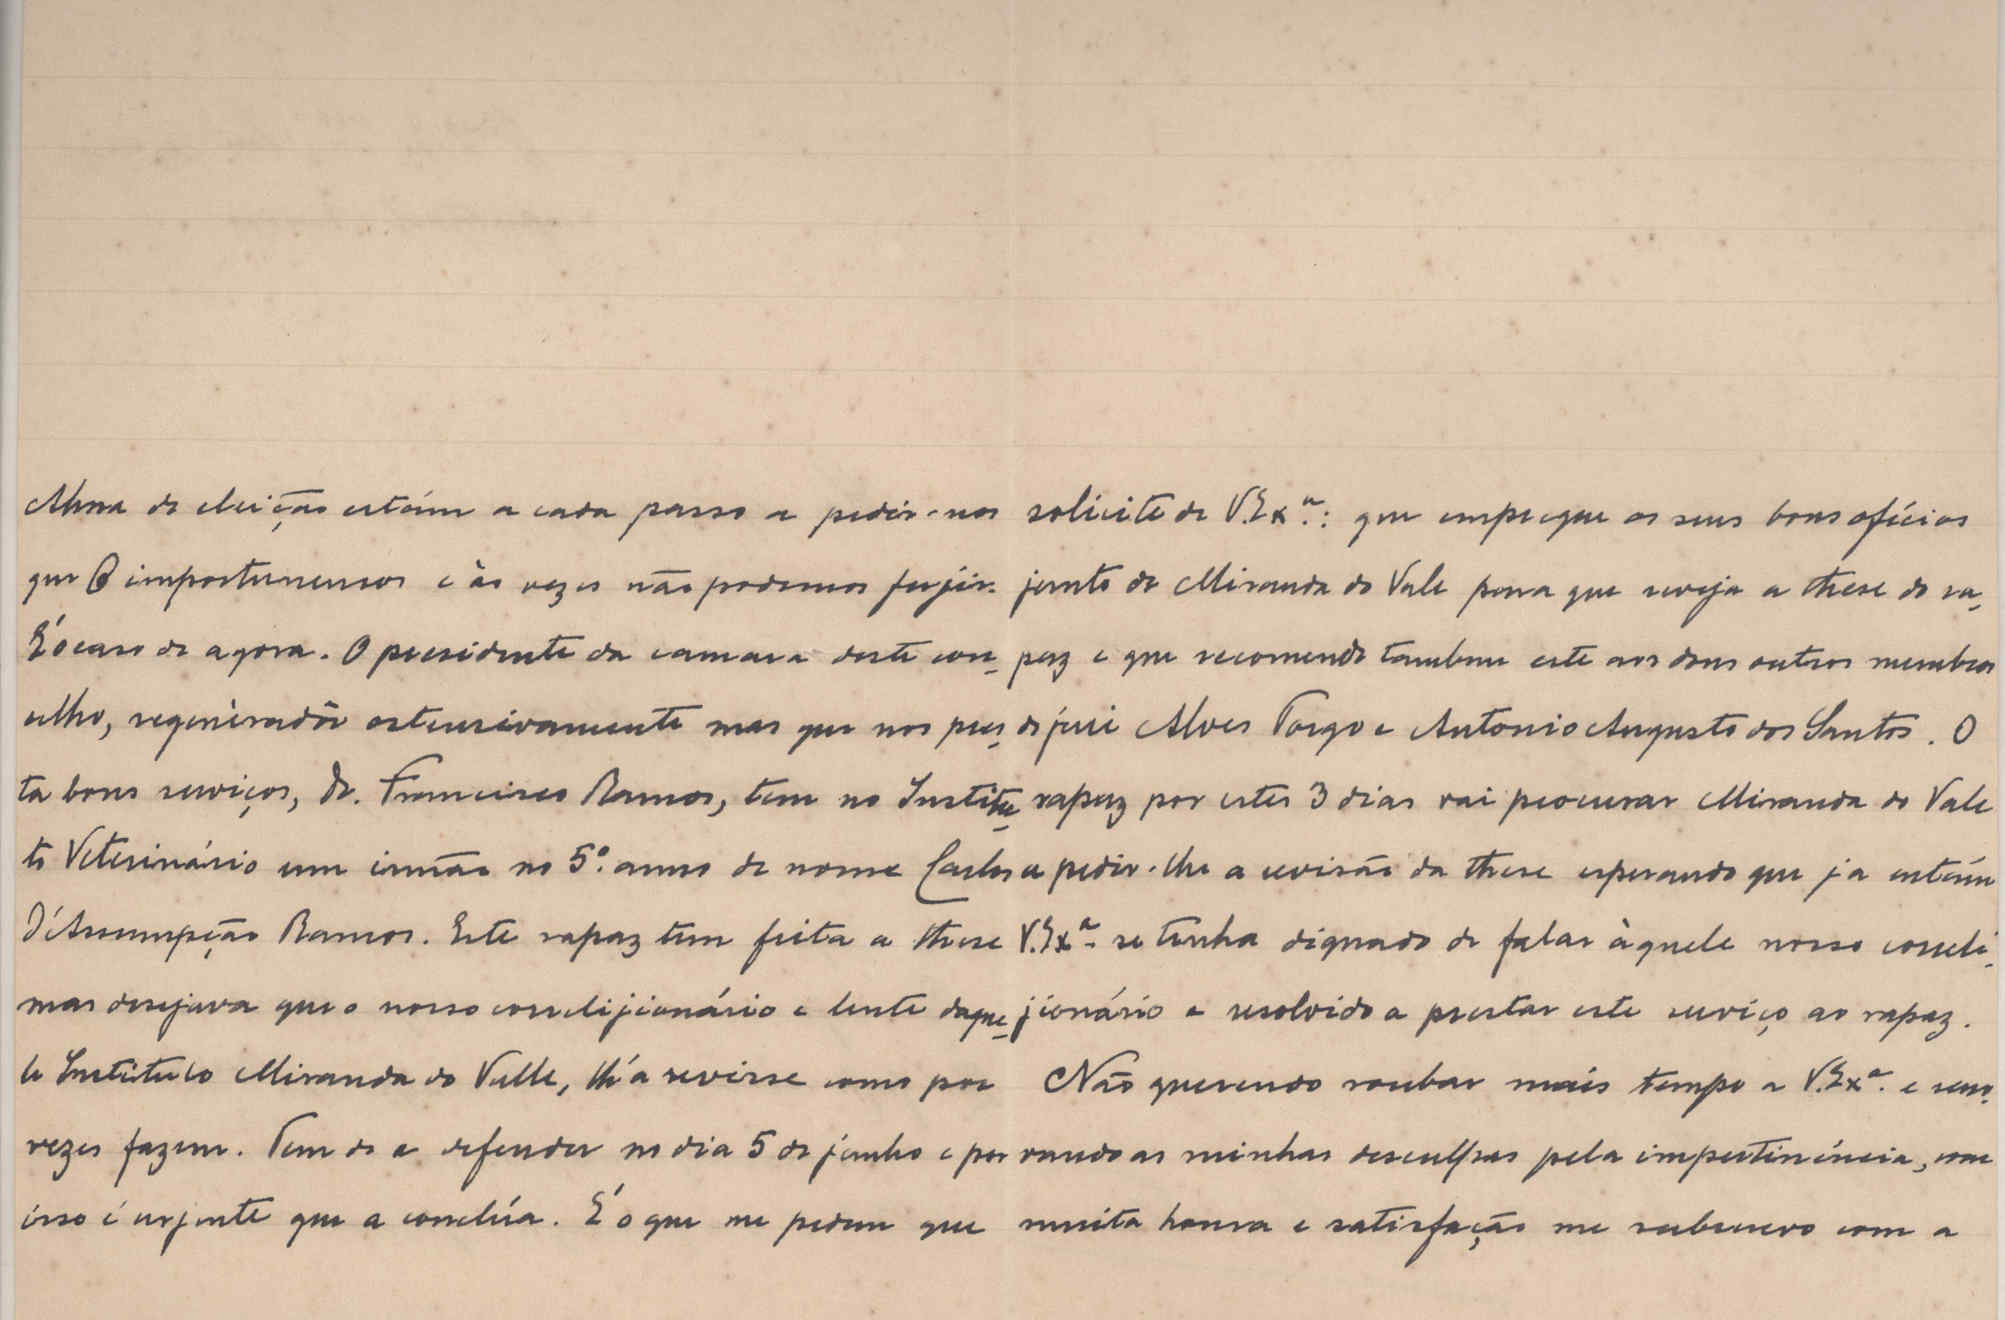 Alma de eleição estám a cada passo a pedir-nos
que O importunemos e às vezes não podemos fujir.
É o caso de agora. O presidente da camara deste con-
celho, regenèradôr ostensivamente mas que nos pres-
ta bons serviços, Dr. Francisco Ramos, tem no Institu-
to Veterinário um irmão no 5.º anno de nome Carlos
d'Assumpção Ramos. Este rapaz tem feita a these
mas desejava que o nosso correlijionário e lente daque-
le Instituto Miranda do Valle, lh'a revisse como por
vezes fazem. Tem de a defender no dia 5 de junho e por
isso é urjente que a conclúa. É o que me pedem que
solicite de V. Exª.: que empregue os seus bons ofícios
junto de Miranda do Vale para que reveja a these do ra-
paz e que recomende tambem este aos dous outros membros
do júri Alves Torgo e Antonio Augusto dos Santos. O
rapaz por estes 3 dias vai procurar Miranda do Vale
a pedir-lhe a revisão da these esperando que já estám
V. Exª. se tenha dignado de falar àquele nosso correli-
jionário e resolvido a prestar este serviço ao rapaz.
Não querendo roubar mais tempo a V. Exª. e reno-
vando as minhas desculpas pela impertinéncia, com
muita honra e satisfação me subscrevo com a